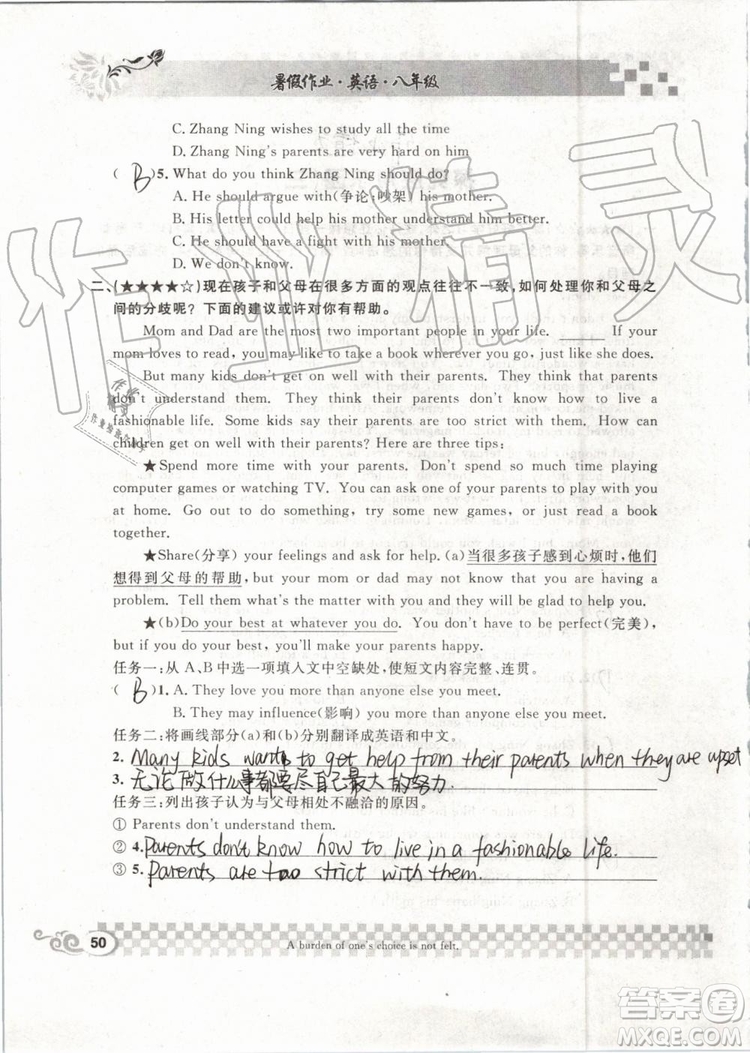 暑假作业·英语·八年级
C. Zhang Ning wishes to study all the time
D. Zhang Ning's parents are very hard on him
( B )5. What do you think Zhang Ning should do?
A. He should argue with(争论;吵架) his mother.
B. His letter could help his mother understand him better.
C. He should have a fight with his mother.
D. We don't know.
二、(★★★★☆)现在孩子和父母在很多方面的观点往往不一致,如何处理你和父母之
间的分歧呢? 下面的建议或许对你有帮助。
Mom and Dad are the most two important people in your life. ______ If your
mom loves to read, you may like to take a book wherever you go, just like she does.
But many kids don't get on well with their parents. They think that their parents
don't understand them. They think their parents don't know how to live a
fashionable life. Some kids say their parents are too strict with them. How can
children get on well with their parents? Here are three tips:
★Spend more time with your parents. Don't spend so much time playing
computer games or watching TV. You can ask one of your parents to play with you
at home. Go out to do something, try some new games, or just read a book
together.
★Share(分享) your feelings and ask for help. (a)当很多孩子感到心烦时,他们
想得到父母的帮助, but your mom or dad may not know that you are having a
problem. Tell them what's the matter with you and they will be glad to help you.
★(b)Do your best at whatever you do. You don't have to be perfect(完美),
but if you do your best, you'll make your parents happy.
任务一:从A、B中选一项填入文中空缺处,使短文内容完整、连贯。
( B )1. A. They love you more than anyone else you meet.
B. They may influence(影响) you more than anyone else you meet.
任务二:将画线部分(a)和(b)分别翻译成英语和中文。
2. Many kids want to get help from their parents when they are upset
3. 无论做什么事都要尽自己最大的努力.
任务三:列出孩子认为与父母相处不融洽的原因。
① Parents don't understand them.
② 4. Parents don't know how to live in a fashionable life.
③ 5. Parents are too strict with them.
50
A burden of one's choice is not felt.
作业精灵
答案圈
MXQE.COM